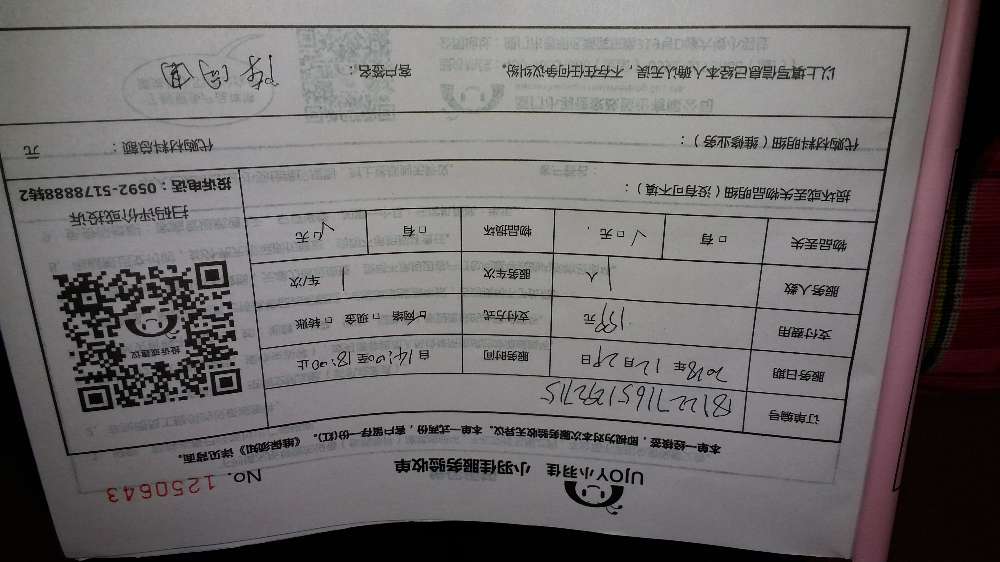 UJOY小羽佳 小羽佳服务验收单
No. 1250643
本单一经核签，即视为对本次服务验收无异议。本单一式两份，客户留存一份(红)。《维保须知》详见背面。
订单编号
服务日期 2018年12月29日 服务时间 自14:00至18:00止
支付费用 199元 支付方式 ☑网络 □现金 □转账
服务人数 1人 服务车次 1车/次
物品丢失 □有 ☑无 物品损坏 □有 ☑无
投诉或建议
扫码评价或投诉
投诉电话：0592-5178888转2
损坏或丢失物品明细（没有可不填）：
代购材料明细（维修业务）： 代购材料总额： 元
以上填写信息已经本人确认无误，不存在任何争议纠纷。 客户签名：